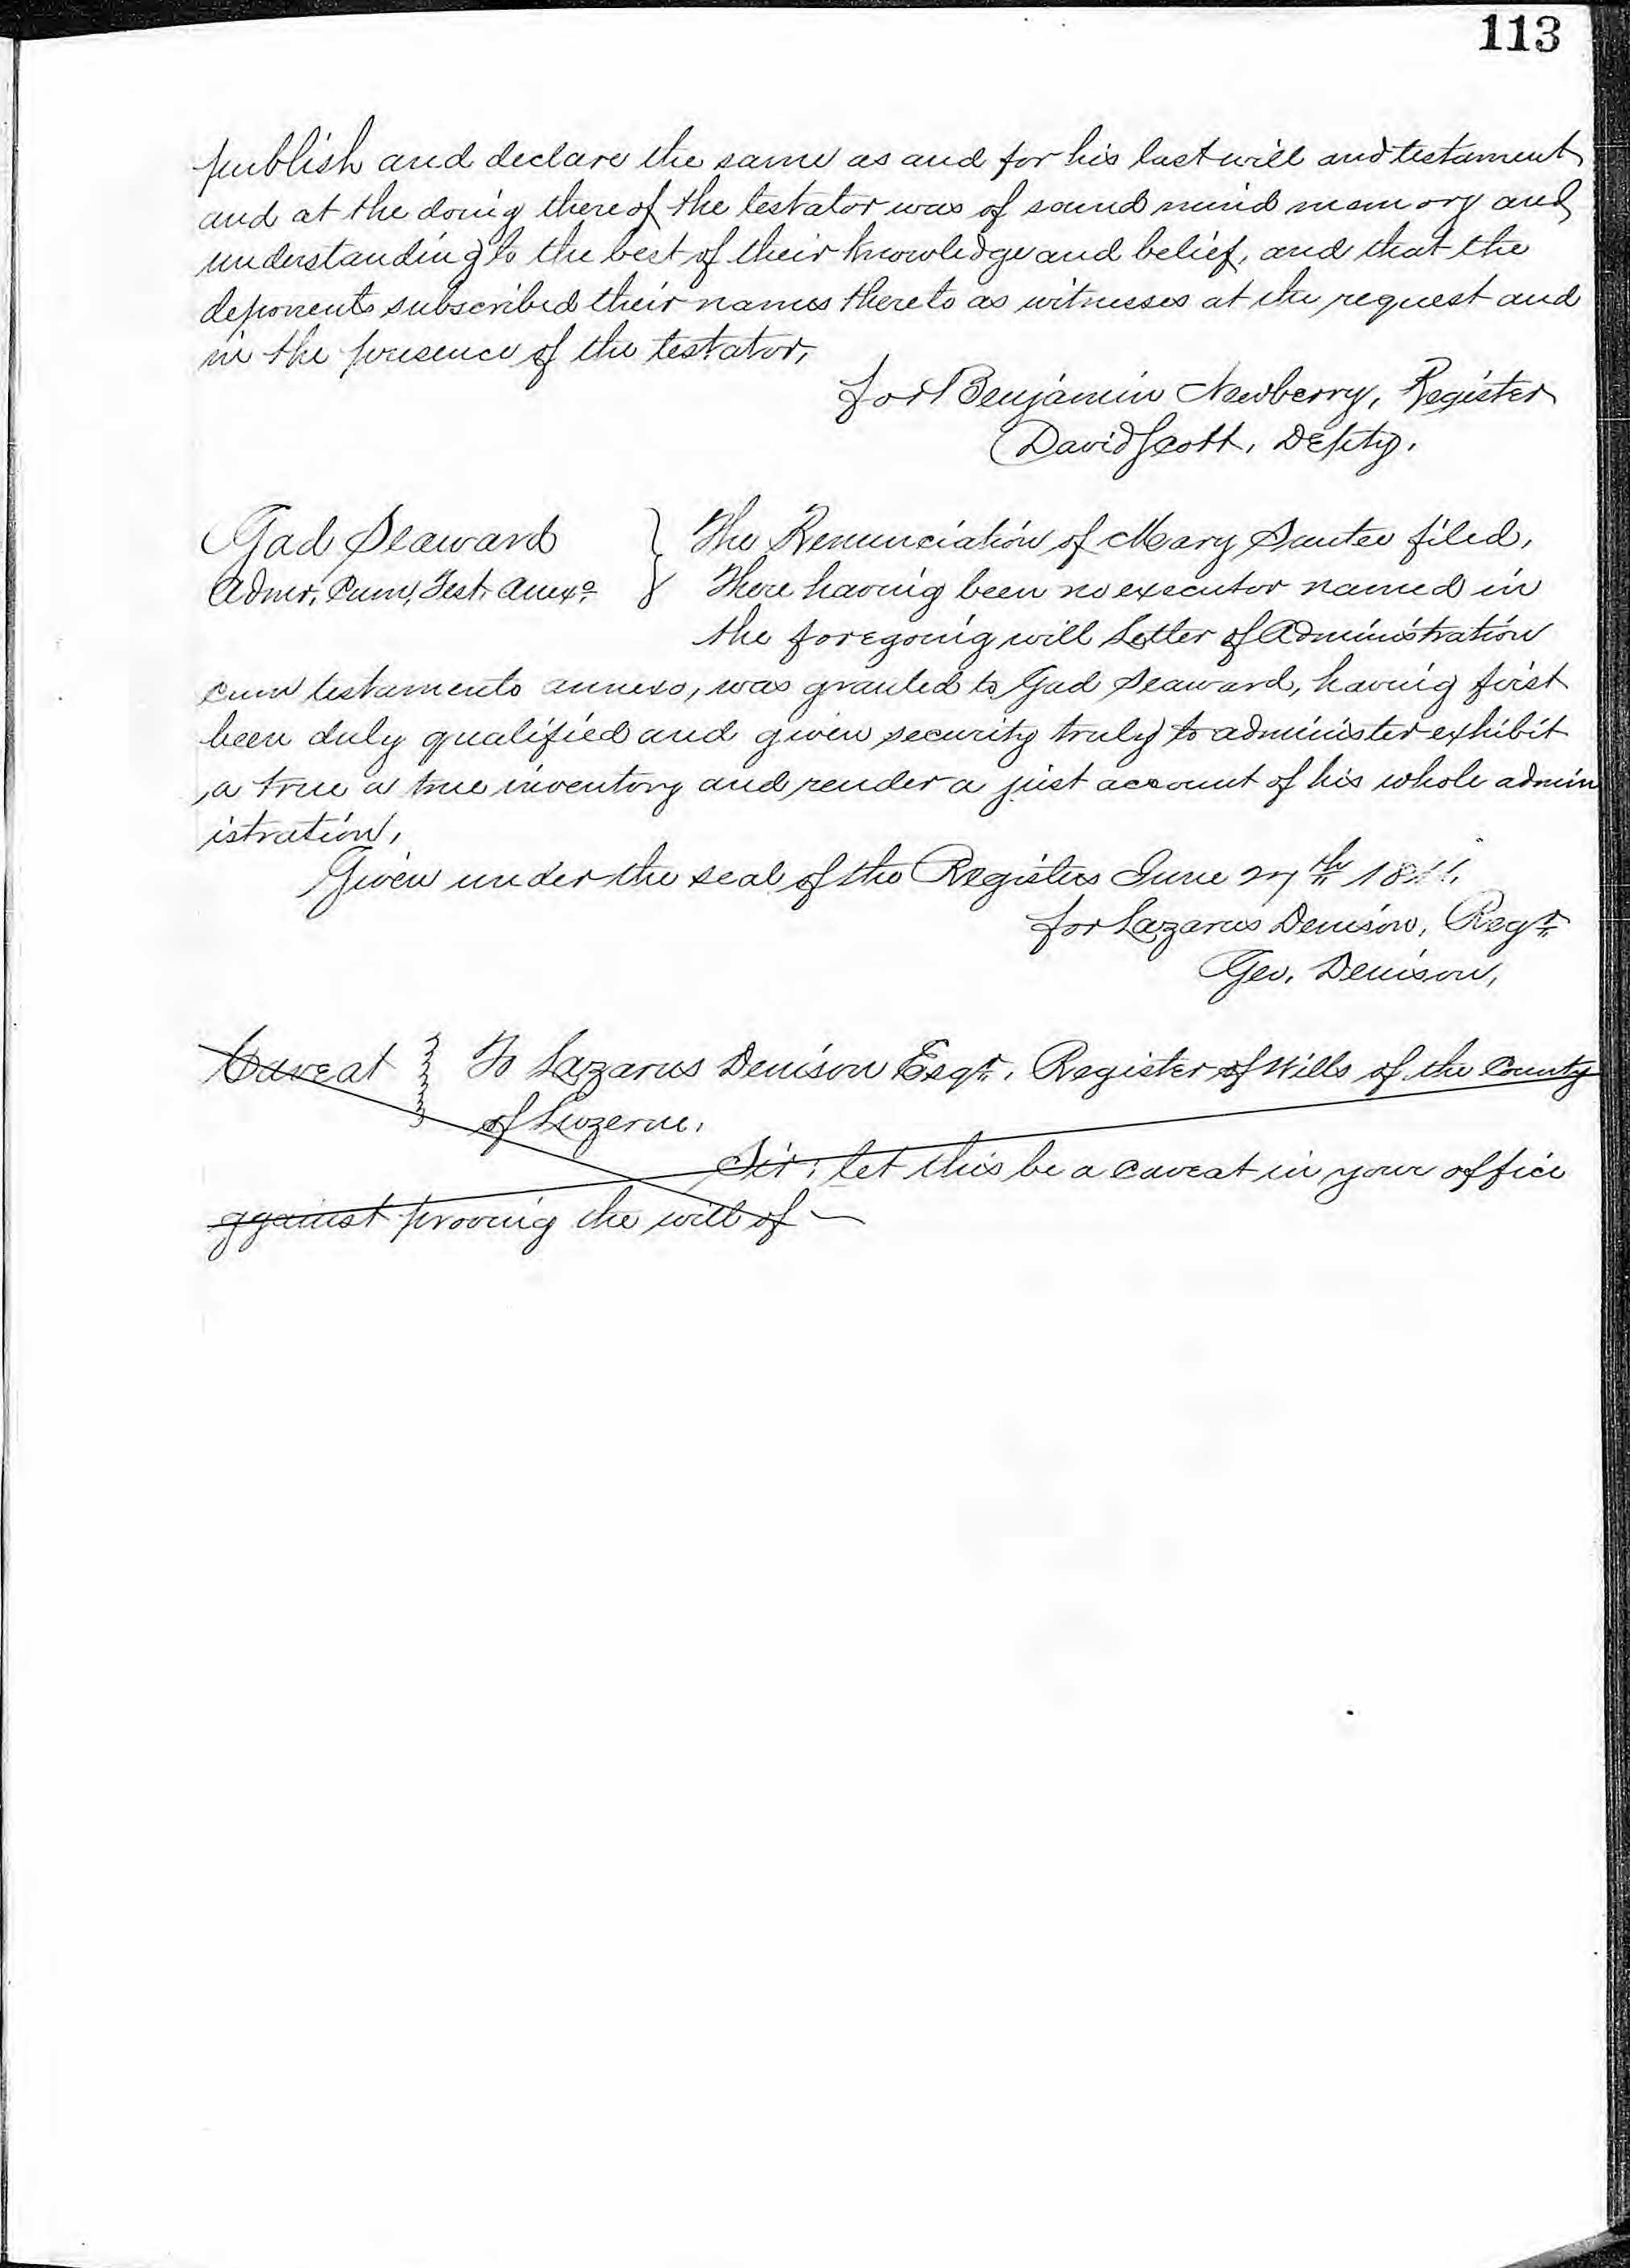 113
publish and declare the same as and for his last will and testament
and at the doing thereof the testator was of sound mind memory and
understanding to the best of their knowledge and belief, and that the
deponents subscribed their names thereto as witnesses at the request and
in the presence of the testator,
for Benjamin Newberry, Register
David Scott, Depty.
Gad Seaward } The Renunciation of Mary Santee filed,
Admr, Cum, Test. Anexo. There having been no executor named in
the foregoing will Letter of Administration
cum testamento annexo, was granted to Gad Seaward, having first
been duly qualified and given security truly to administer exhibit
, a true a true inventory and render a just account of his whole admin
istration,
Given under the seal of the Registers June 27th
for Lazarus Denison, Regr.
Geo. Denison,
Caveat } To Lazarus Denison Esqr. Register of Wills of the County
of Luzerne.
Sir; let this be a caveat in your office
against prooving the will of —